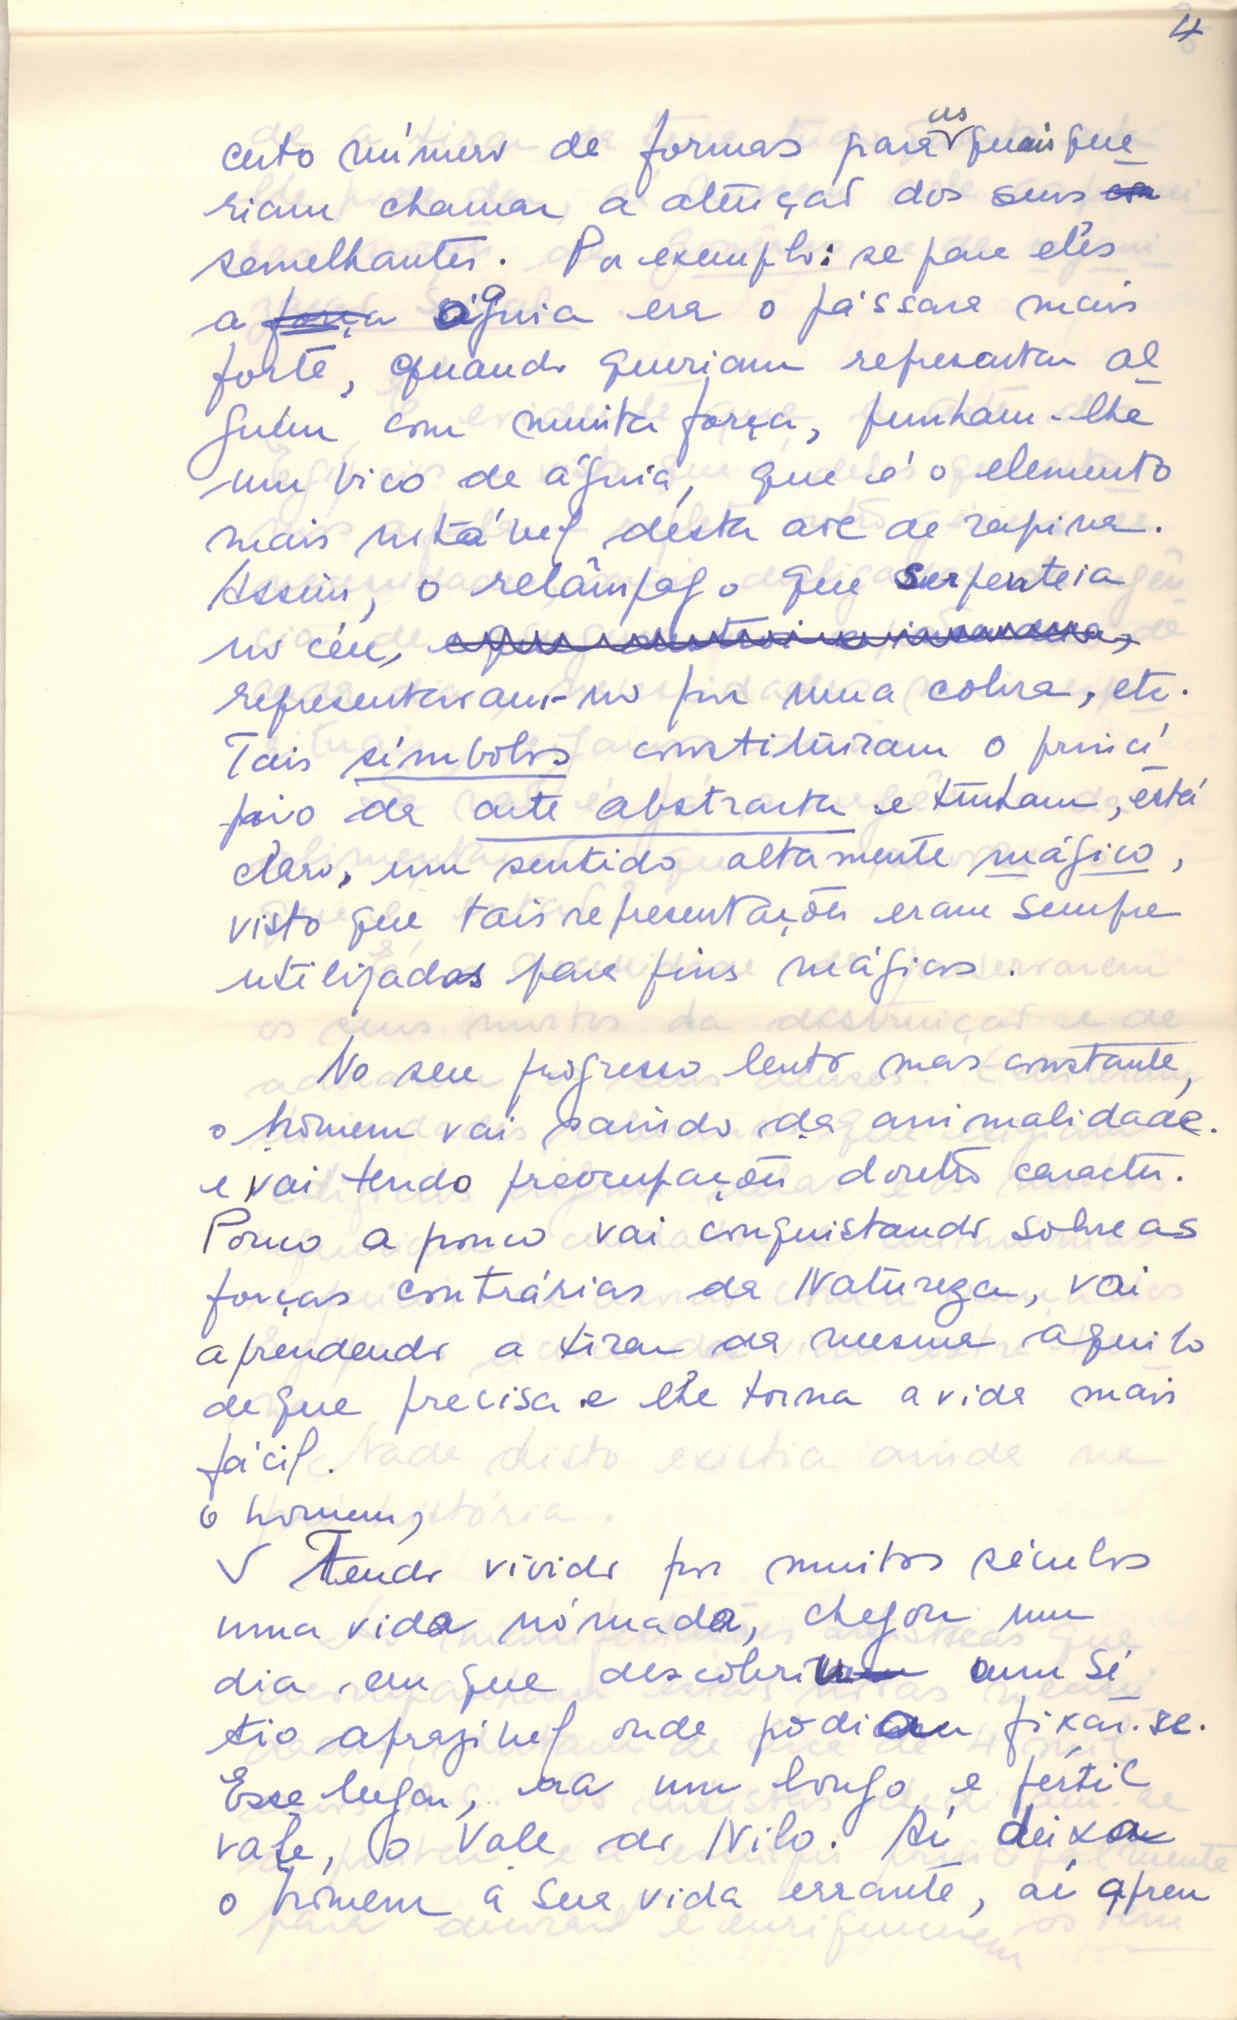 4
certo número de formas para as quais que
riam chamar a atenção dos seus
semelhantes. Por exemplo: se para eles
a força águia era o pássaro mais
forte, quando queriam representar al
guém com muita força, punham-lhe
um bico de águia, que é o elemento
mais notável desta ave de rapina.
Assim, o relâmpago que serpenteia
no céu,
representavam-no por uma cobra, etc.
Tais símbolos constituiram o princí
pio da arte abstracta e tinham, está
claro, um sentido altamente mágico,
visto que tais representações eram sempre
utilizadas para fins mágicos.
No seu progresso lento mas constante,
o homem vai saindo da animalidade.
e vai tendo preocupações doutro caracter.
Pouco a pouco vai conquistando sobre as
forças contrárias da Natureza, vai
aprendendo a tirar da mesma aquilo
de que precisa e lhe torna a vida mais
fácil.
o homem,
V Tendo vivido por muitos séculos
uma vida nómada, chegou um
dia em que descobriu um sí
tio aprazível onde podia fixar-se.
Esse lugar, era um longo e fértil
vale, o Vale do Nilo. Aí deixa
o homem a sua vida errante, aí apren